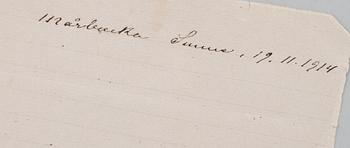 Mårbacka Sunne, 19.11.1914